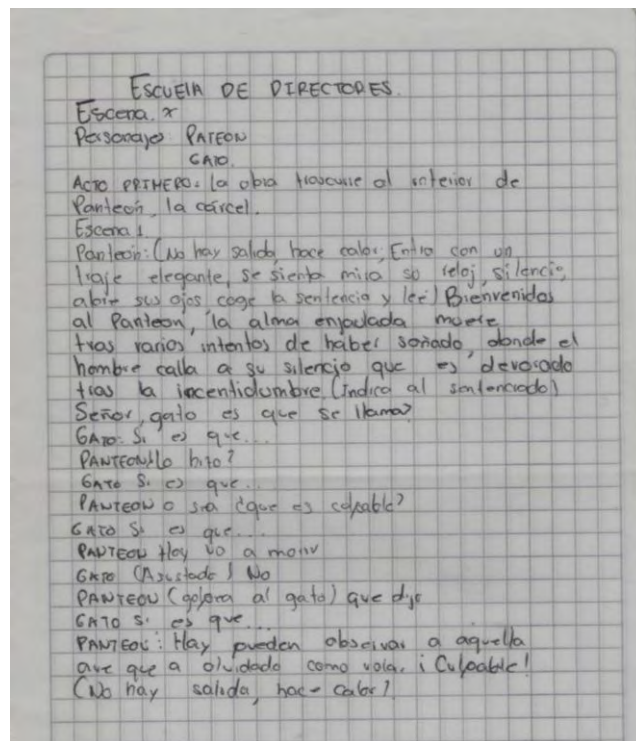 ESCUELA DE DIRECTORES.
Escena. x
Personajes PATEON
GATO.
ACTO PRIMERO. la obra trascurre al interior de
Panteon, la cárcel.
Escena 1
Panteon: (No hay salida, hace calor, Entra con un
traje elegante, se sienta mira su reloj, silencio,
abre sus ojos coge la sentencia y lee) Bienvenidos
al Panteon, la alma enjaulada muere
tras varios intentos de haber soñado, donde el
hombre calla a su silencio que es devorado
tras la incentidumbre (Indica al sentenciado)
Señor, gato es que se llama?
GATO: Si es que...
PANTEON: lo hizo?
GATO Si es que...
PANTEON o sea ¿que es culpable?
GATO Si es que....
PANTEON Hoy va a morir
GATO (Asustado) No
PANTEON (golpea al gato) que dijo
GATO Si es que...
PANTEON: Hay pueden observar a aquella
ave que a olvidado como volar ¡Culpable!
(No hay salida, hace calor).